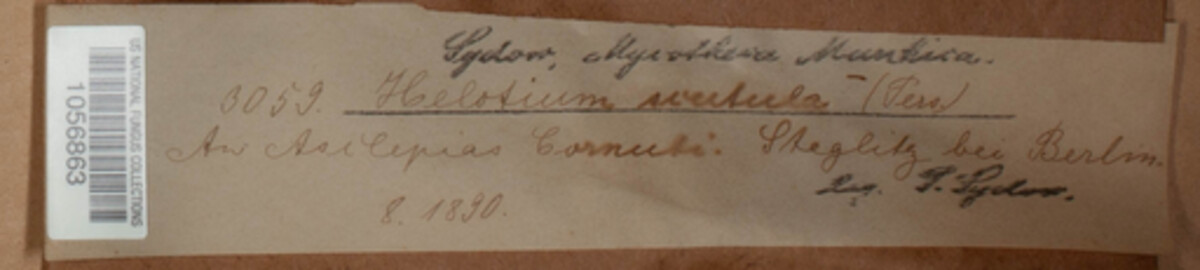 Sydow, Mycotheca Marchica.
3059. Helotium scutula (Pers)
An Asclepias Cornuti. Steglitz bei Berlin.
leg. P. Sydow.
8. 1890.
US NATIONAL FUNGUS COLLECTIONS
1056863